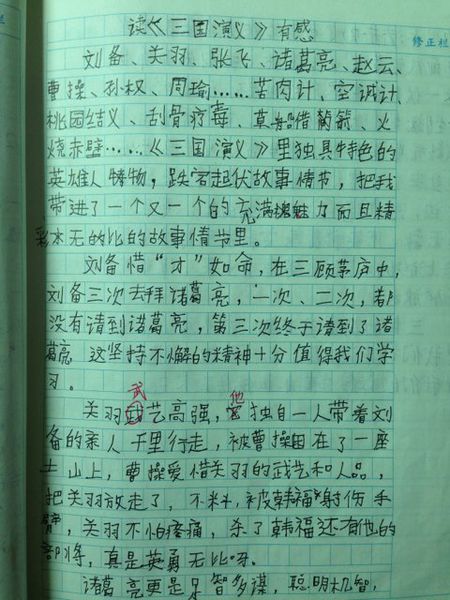 读《三国演义》有感
修正栏
刘备、关羽、张飞、诸葛亮、赵云、
曹操、孙权、周瑜……苦肉计、空城计、
桃园结义、刮骨疗毒、草船借箭、火
烧赤壁……《三国演义》里独具特色的
英雄人物，跌宕起伏故事情节，把我
带进了一个又一个的充满魅力而且精
彩木无的比的故事情节里。
刘备惜“才”如命，在三顾茅庐中，
刘备三次去拜诸葛亮，一次、二次，都
没有请到诸葛亮，第三次终于请到了诸
葛亮 这坚持不懈的精神十分值得我们学
习。
武 他
关羽艺高强，独自一人带着刘
备的亲人千里行走，被曹操困在了一座
土山上，曹操爱惜关羽的武艺和人品，
把关羽放走了，不料，被韩福射伤手
臂，关羽不怕疼痛，杀了韩福还有他的
部将，真是英勇无比呀。
诸葛亮更是足智多谋，聪明机智，